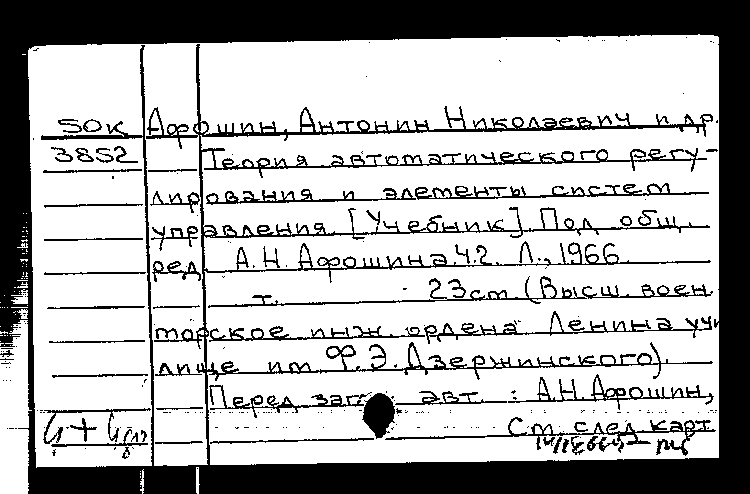 50к Афошин, Антонин Николаевич и др.
3852 Теория автоматического регу-
лирования и элементы систем
управления. [Учебник] Под общ.
ред. А.Н. Афошина Ч.2. Л., 1966.
т. 23см. (Высш. воен
морское инж. ордена Ленина учи
лище им Ф.Э.Дзержинского).
Перед заг. авт. : А.Н.Афошин,
См. след. карт